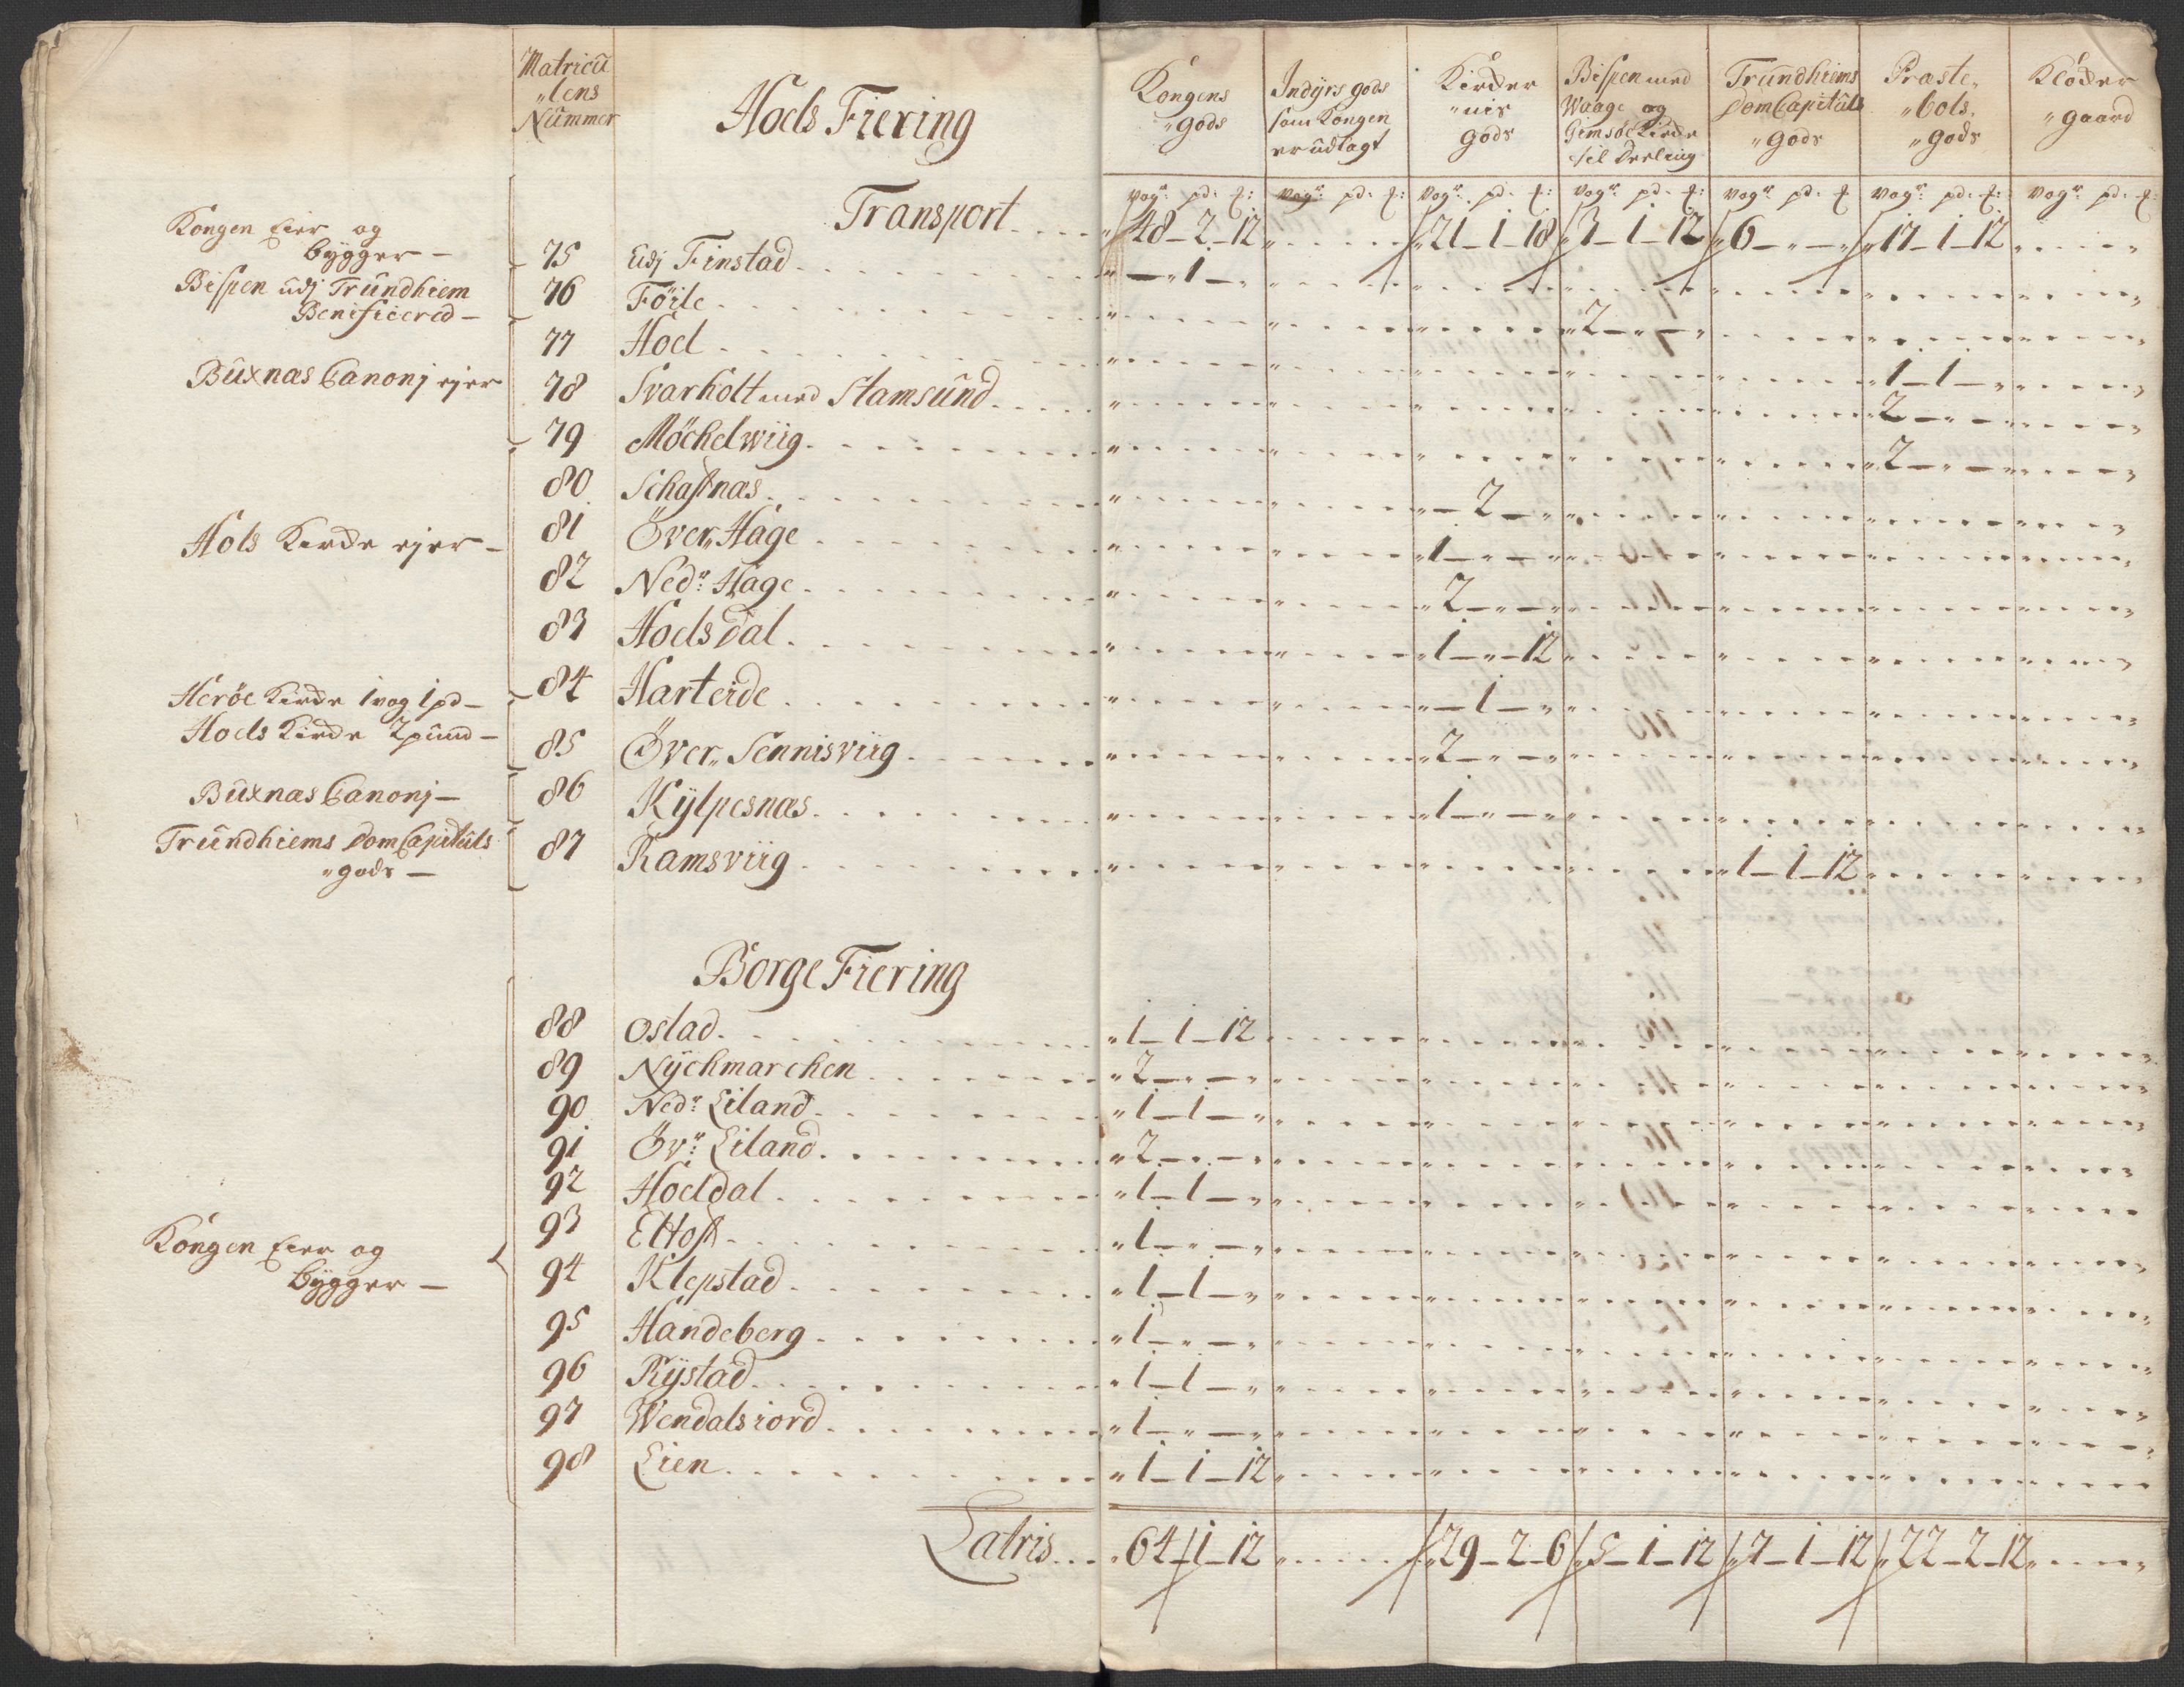 Matricu
„lens
Nummer
Hoels Fiering
Kongens
„gods
Indÿrs gods
som Kongen
er udlagt
Kircker
„nis
gods
Bispen med
Waage og
Gimsøe Kircke
til deeling
Trundhiems
Dom Capituls
„gods
Præste„
„bols„
„gods
Klocker
„gaard
vog: pd: ℔: vogr: pd: ℔: vogr: pd: ℔: vogr: pd: ℔: vogr pd: ℔ vogr: pd: ℔: vogr: pd: ℔
Transport 48 - 2 - 12 „ 21 - 1 - 18 3 - 1 - 12 6 - „ - „ 17 - 1 - 12
Kongen Eier og
bÿgger —
75 Udj Finstad - „ 1 - „
Bispen udj Trundhiem
Benificered —
76 Föile 2 - „ - „
77 Hoel 1 - 1 - „
Buxnæs Canonj ejer
78 Svarholt med Stamsund 2 - „ - „
79 Møchelwiig 2 - „ - „
80 Schaftnæs - 2 - „
Hols Kircke ejer —
81 Över„ Hage 1 - „ - „
82 Nedr: Hage 2 - „ - „
83 Hoelsdal 1 - „ - 12
84 Harteide - 1 - „
Herøe Kircke 1 vog 1 pd —
Hoels Kircke 2 pund —
85 Över„ Sennisviig 2 - „ - „
Buxnæs Canonj —
86 Kÿlpesnæs 1 - „ - „
Trundhiems Dom Capituls
„gods —
87 Ramsviig 1 - 1 - 12
Borge Fiering
88 Ostad 1 - 1 - 12
89 Nÿchmarchen 2 - „ - „
90 Nedr: Eiland 1 - 1 - „
91 Övr: Eiland 2 - „ - „
92 Hoeldal 1 - 1 - „
93 Eltoft 1 - „ - „
Kongen Eier og
bÿgger —
94 Klepstad 1 - 1 - „
95 Handeberg 1 - „ - „
96 Rÿstad 1 - 1 - „
97 Wendalsiord 1 - „ - „
98 Eien 1 - 1 - 12
Latris 64 - 1 - 12 „ 29 - 2 - 6 5 - 1 - 12 7 - 1 - 12 22 - 2 - 12